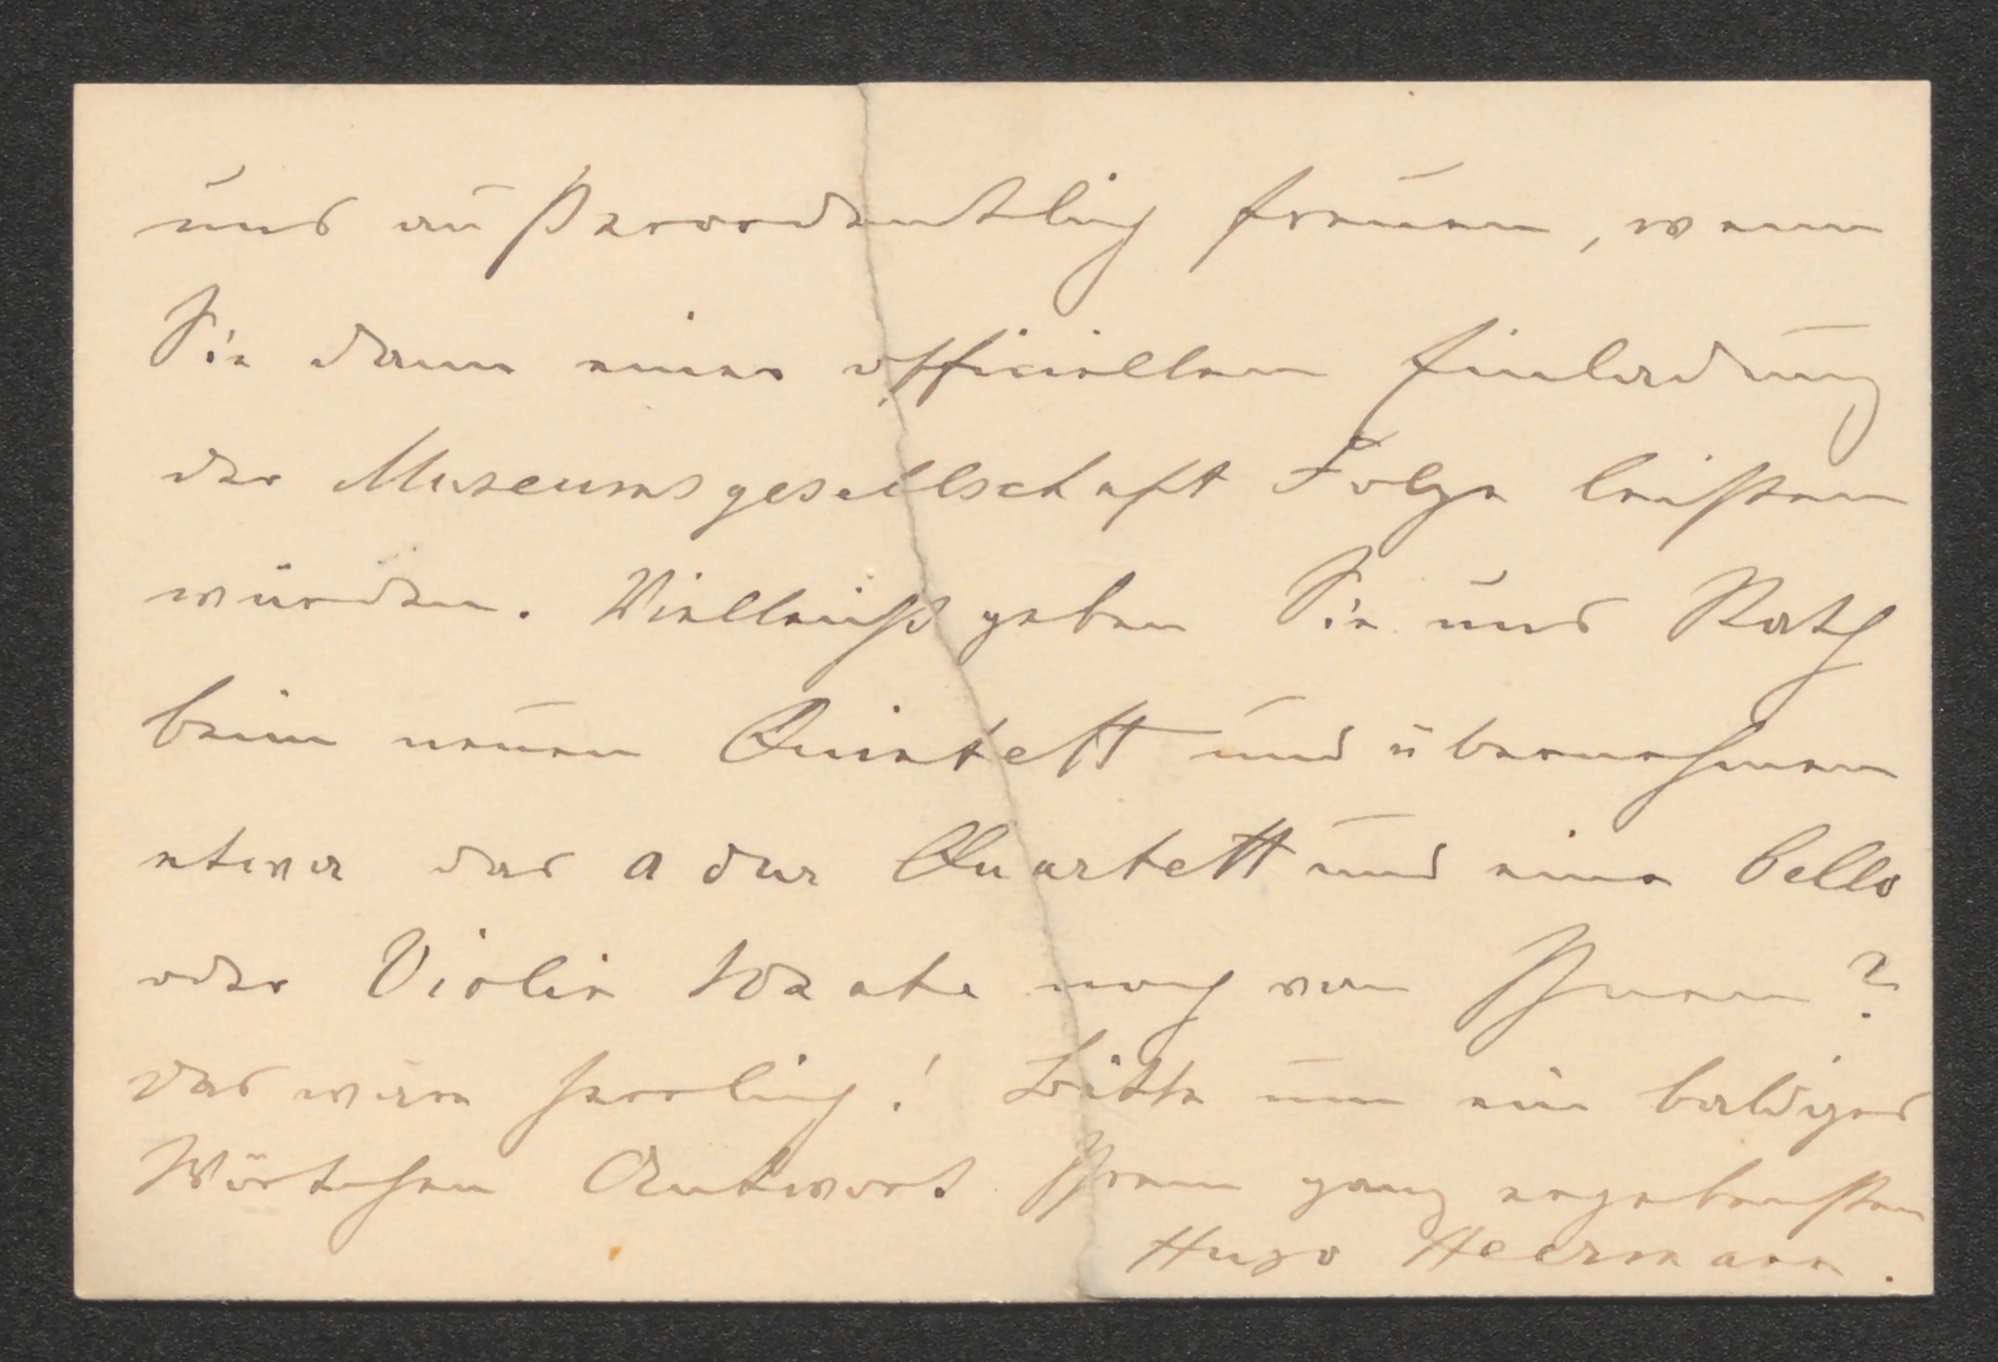 uns außerordentlich freuen, wenn
Sie dann einer officiellen Einladung
der Museumsgesellschaft Folge leisten
würden. Vielleicht geben Sie uns Rath
beim neuen Quintett und übernehmen
etwa das A dur Quartett und eine Cello
oder Violin Sonate noch von Ihnen?
das wäre herrlich! Bitte um ein baldiges
Wörtchen Antwort Ihrem ganz ergebensten
Hugo Heermann.